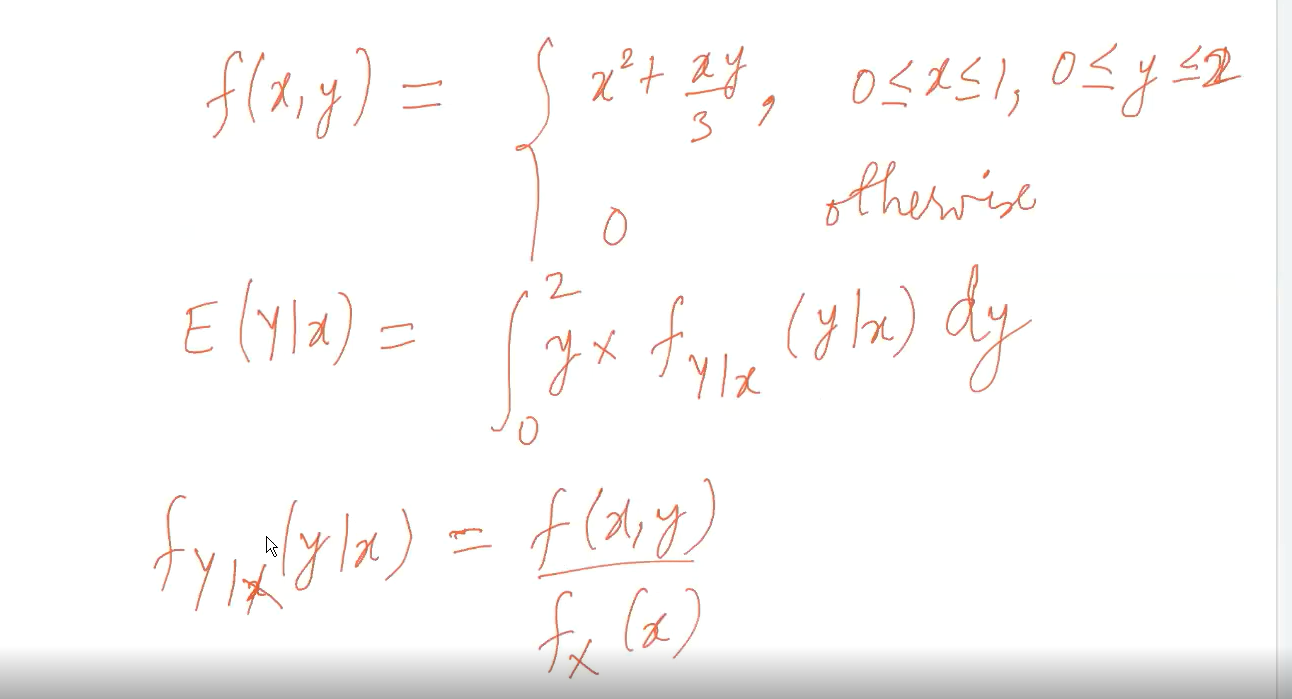 f(x,y) = { x² + xy/3, 0≤x≤1, 0≤y≤2
0 otherwise
E(Y|x) = ∫₀² y × f_{Y|x} (y|x) dy
f_{Y|X}(y|x) = f(x,y) / f_X(x)